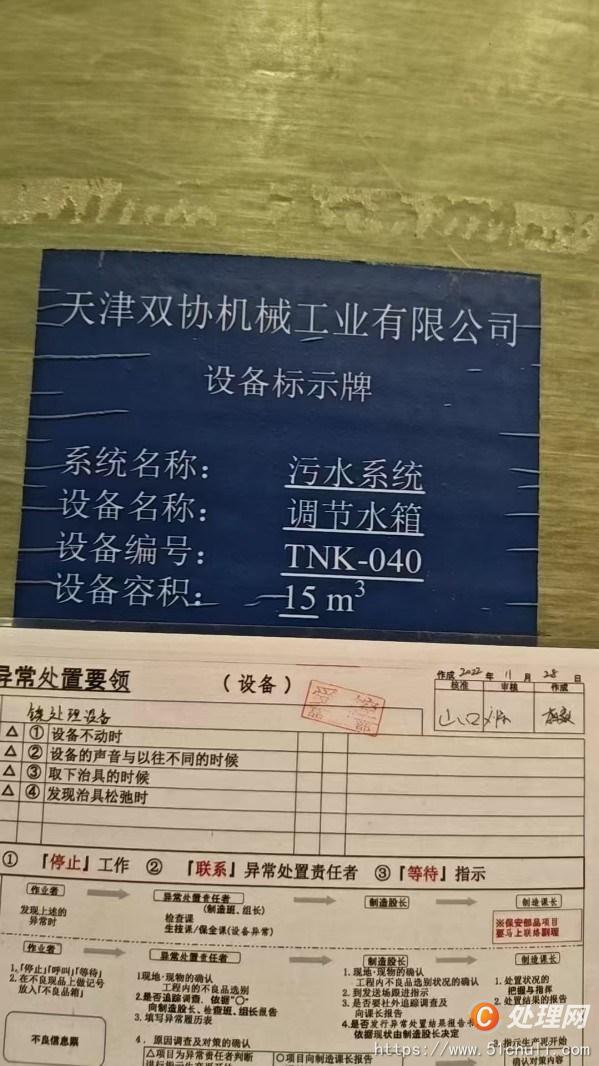 天津双协机械工业有限公司
设备标示牌
系统名称： 污水系统
设备名称： 调节水箱
设备编号： TNK-040
设备容积： 15 m³
异常处置要领 （设备） 作成 2022 年 11 月 28 日
核准 审核 作成
山口
设备
△ ① 设备不动时
△ ② 设备的声音与以往不同的时候
△ ③ 取下治具的时候
△ ④ 发现治具松弛时
① 『停止』工作 ② 『联系』异常处置责任者 ③『等待』指示
作业者 异常处置责任者 制造股长 制造课长
发现上述的
异常时
(制造班、组长)
检查课
生技课/保全课(设备异常)
※保安部品项目
要马上联络副理
作业者 异常处置责任者 制造股长 制造课长
1.『停止』『呼叫』『等待』
2. 在不良现品上做记号
放入『不良品箱』
不良信息票
1现地·现物的确认
工程内的不良品选别
2.是否追踪调查、依据"○"
向制造股长、检查班、组长报告
3. 填写异常履历表
4. 原因调查及对策的确认
△项目为异常责任者判断
1. 现地·现物的确认
工程内不良品选别状况的确认
2. 到发送场跟进指示
3. 是否要社外追踪调查及
向课长报告
4.是否发行异常处置结果报告书
依据现状由制造股长决定
○项目向制造课长报告
1. 处置状况的
把握与指挥
2. 处置结果的报告
3.指示生产再开始
确认对策内容
C 处理网
https://www.51chuli.com